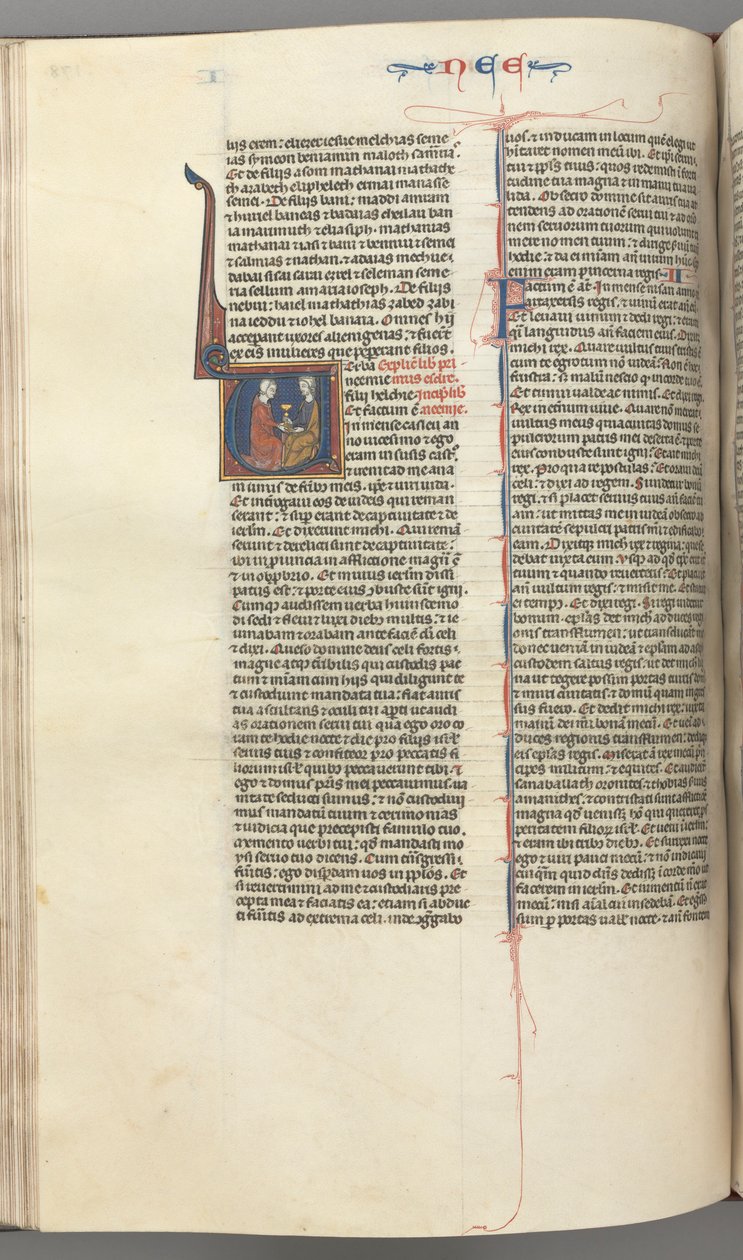 NEE
I
hijs erem: eliezer iesue melchias seme
ias symeon beniamin maloth
Et de filijs asom mathanai mathathe
th elipheleth ermai manasse
semei. De filijs bani: maddi amram
& huel baneas & badaias cheilau ban
ia marimuth & eliasiph. mathanias
mathanai & iasi & bani & bennui & semei
& salmias & nathan. & adaias
sisai sarai ezrel & seleman seme
ria sellum amaria ioseph. De filijs
nebui: haiel mathathias zabed zabi
na ieddu & iohel banaia. Omnes hij
acceperant uxores alienigenas: & fuert
ex eis mulieres que pepererant filios.
Uerba Explic lib pri
neemie mus esdre.
filij helchie. Incipit lib
Et factum e neemie.
in mense casleu an
no uicesimo & ego
eram in susis cast
& uenit ad me ana
ni unus de frib meis. ipe & uiri iuda.
Et interrogaui eos de iudeis qui reman
serant: & sup erant de captiuitate & de
ierlm. Et dixerunt michi. Qui remā
serunt & derelicti sunt de captiuitate:
ibi in puincia in afflictione magna ē
& in obpbrio. Et murus ierlm dissi
patus est: & porte eius gbuste sunt igni.
Cumq audissem uerba huiuscemo
di sedi & fleui & luxi dieb multis: & ie
iunabam & orabam ante faciē di celi
& dixi. Queso domine deus celi fortis
magne atq tribilis qui custodis pac
tum & miam cum hijs qui diligunt te
& custodiunt mandata tua: fiat auris
tua ascultans & oculi tui apti ut audi
as orationem serui tui qua ego oro co
ram te hodie nocte & die pro filijs isrl
seruis tuis & confiteor pro peccatis fi
liorum isrl quib peccauerunt tibi. &
ego & domus pris mei peccauimus. ua
nitate seducti sumus: & nō custodiui
mus mandatū tuum & cerimonias
& iudicia que precepisti famulo tuo.
Memento uerbi tui: qd mandasti mo
ysi seruo tuo dicens. Cum tnsgressi
fuitis: ego dispdam uos in pplos. Et
si reuertimini ad me & custodiatis pre
cepta mea & faciatis ea: etiam si abduc
ti fuitis ad extrema celi. inde ggregabo
uos. & inducam in locum quē elegi ut
hitaret nomen meū ibi. Et ipi serui
tui & ppls tuus: quos redemisti in forti
tudine tua magna & in manu tua ua
lida. Obsecro domine sit auris tua at
tendens ad orationē serui tui & ad oro
nem seruorum tuorum qui uolunt ti
mere nomen tuum: & dirige suū tuū
hodie: & da ei miam an uirum hūc. Ego
enim eram pincerna regis. II
Factum ē at In mense nisan anno
artaxersis regis. & uinū erat an eū.
Et leuaui uinum & dedi regi: & eram
qi languidus an faciem eius. Dixitq
michi rex. Quare uultus tuus tristis ē
cum te egrotum nō uideā: Non ē hoc
frustra: si malū nescio q in corde tuo ē.
Et timui ualde ac nimis. Et dixi regi.
Rex in etnum uiue. Quare nō mereat
uultus meus quia ciuitas domus se
pulcrorum patris mei deserta ē & porte
eius combuste sunt igni: Et ait michi
rex. Pro qua re postulas: Et oraui deū
celi: & dixi ad regem. Si uidetur bonū
regi: & si placet seruus tuus an faciē tu
am: ut mittas me in iudeā obsecro ad
ciuitatē sepulcri patris mi & edificabo
eam. Dixitq mich rex & regina: que se
debat iuxta eum: Usq ad qd tps erit it
tuum & quando reuerteris: Et placui
an uultum regis: & misit me. Et
ei tempus. Et dixi regi. Si regi uidetur
bonum. eplas det mich ad duces regi
onis transflumen: ut transducāt me
donec ueniā in iudeā & eplam ad asaph
custodem saltus regis: ut det mich lig
na ut tegere possim portas turris dom
& muri ciuitatis: & domū quam ingres
sus fuero. Et dedit michi rex: iuxta
manū dei mi bonā mecū. Et ueni ad
duces regionis transflumen: dediq
eis eplas regis. Miserat a rex mecū prī
cipes militum: & equites. Et audiert
sanaballath oronites: & thobias suus
amanithes: & contristati sunt afflictōe
magna qd uenisset hō qui quereret ps
peritatem filiorū isrl. Et ueni ierlm:
& eram ibi tribus dieb. Et surrexi nocte
ego & uiri pauci mecū: & nō indicaui
cuiqm quid dns dedisset i corde mō ut
facerem in ierlm. Et iumentū n erat
mecū: nisi aial cui insedebā. Et egres
sum p portas uall nocte. & an fontem